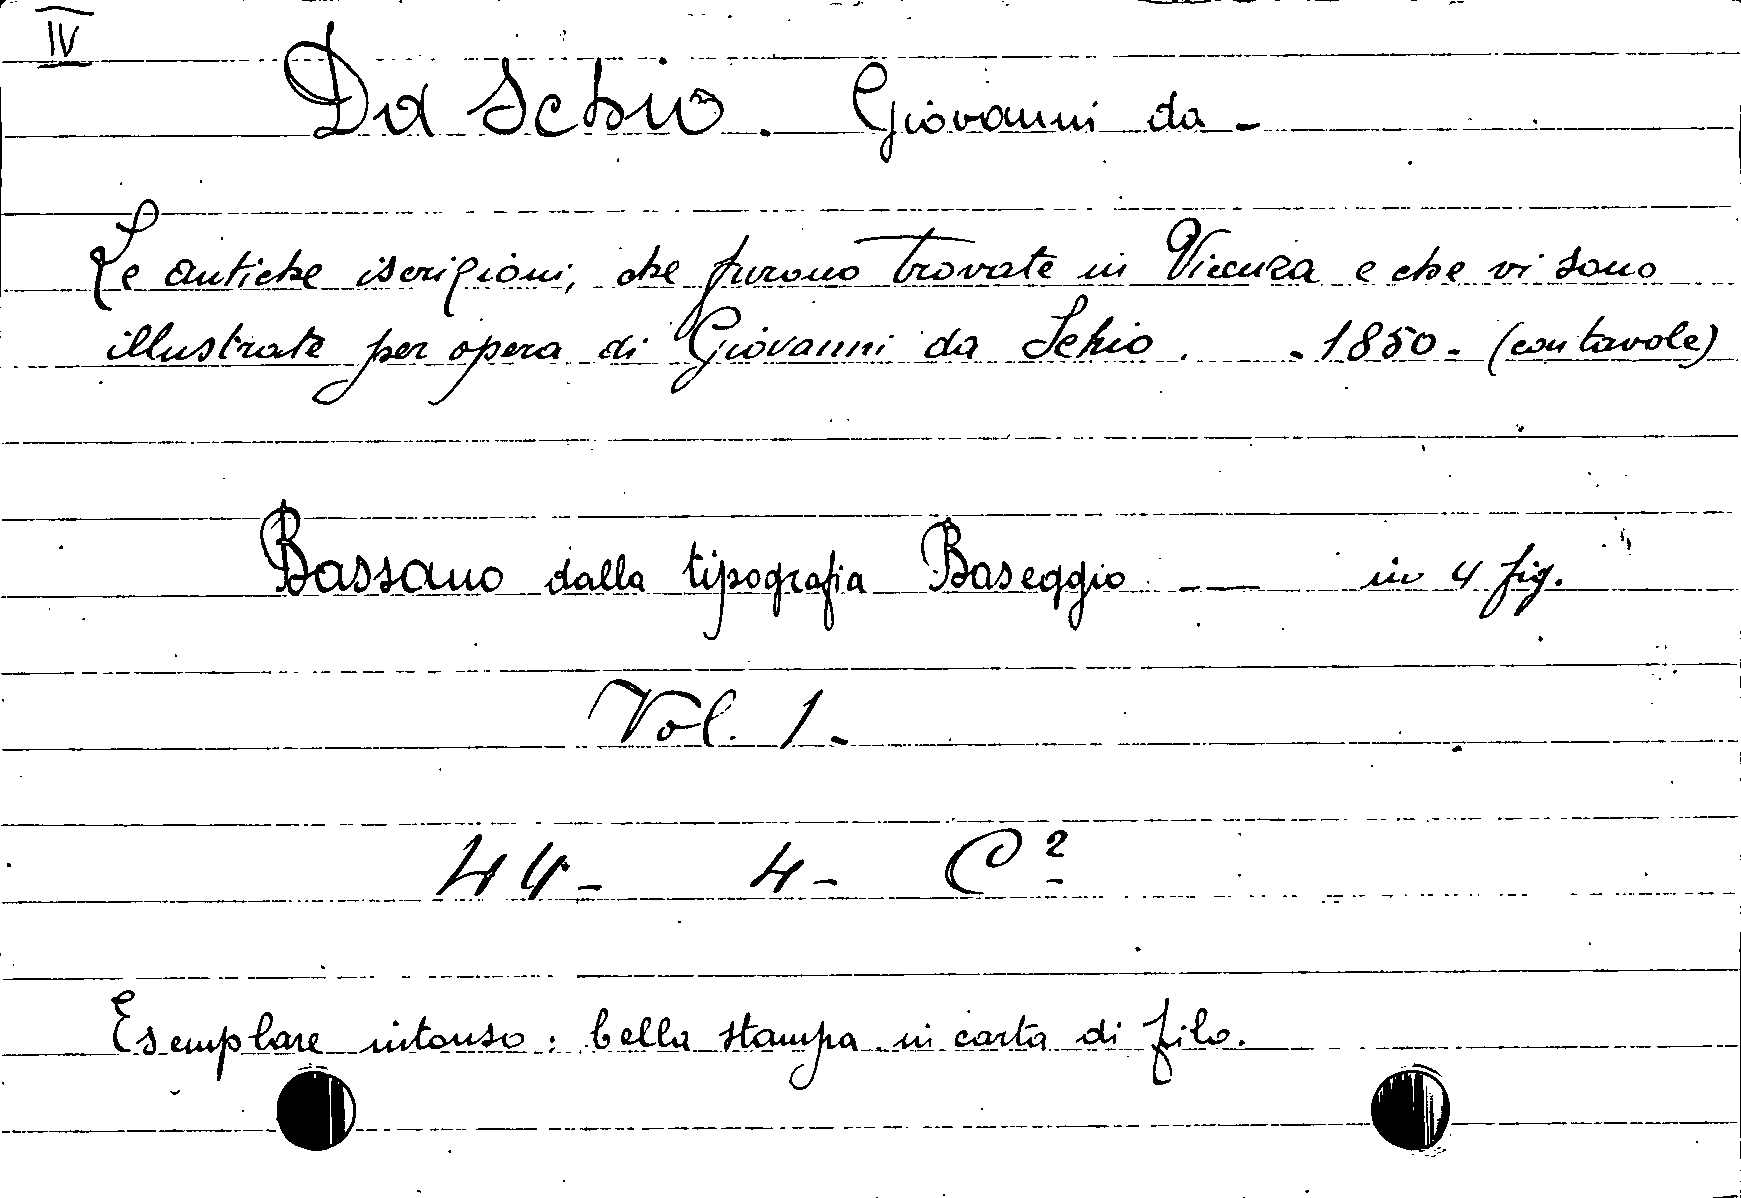 IV
Da Schio. Giovanni da -
Le antiche iscrizioni, che furono trovate in Vicenza e che vi sono
illustrate per opera di Giovanni da Schio. - 1850 - (con tavole)
Bassano dalla tipografia Baseggio — in 4 fig.
Vol. 1 -
44 - 4 - C²
Esemplare intonso: bella stampa in carta di filo.